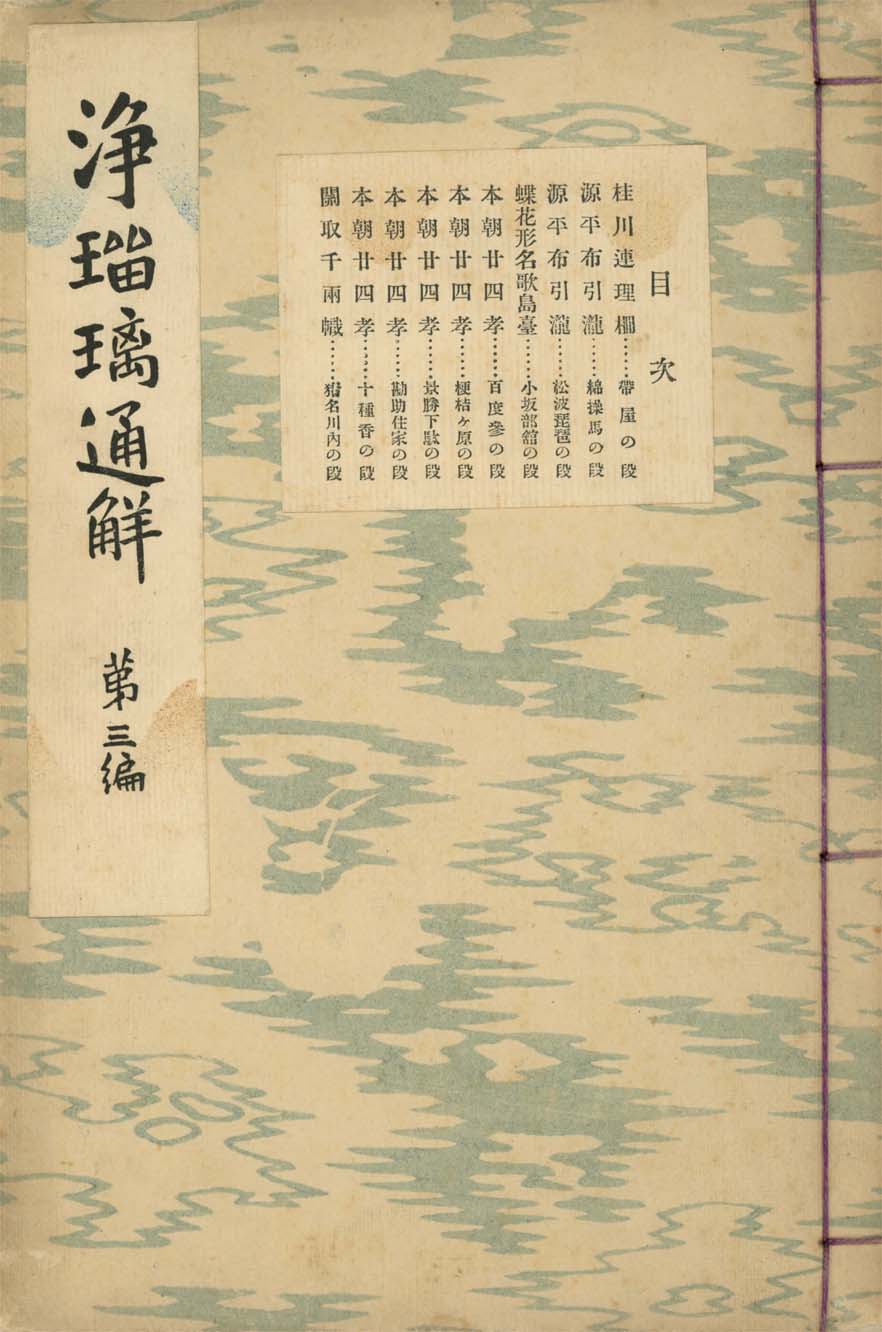 目次
桂川連理柵……帶屋の段
源平布引瀧……綿操馬の段
源平布引瀧……松波琵琶の段
蝶花形名歌島臺……小坂部舘の段
本朝廿四孝……百度參の段
本朝廿四孝……桔梗ヶ原の段
本朝廿四孝……景勝下駄の段
本朝廿四孝……勘助住家の段
本朝廿四孝……十種香の段
關取千兩幟……猪名川内の段
浄瑠璃通解
第三編